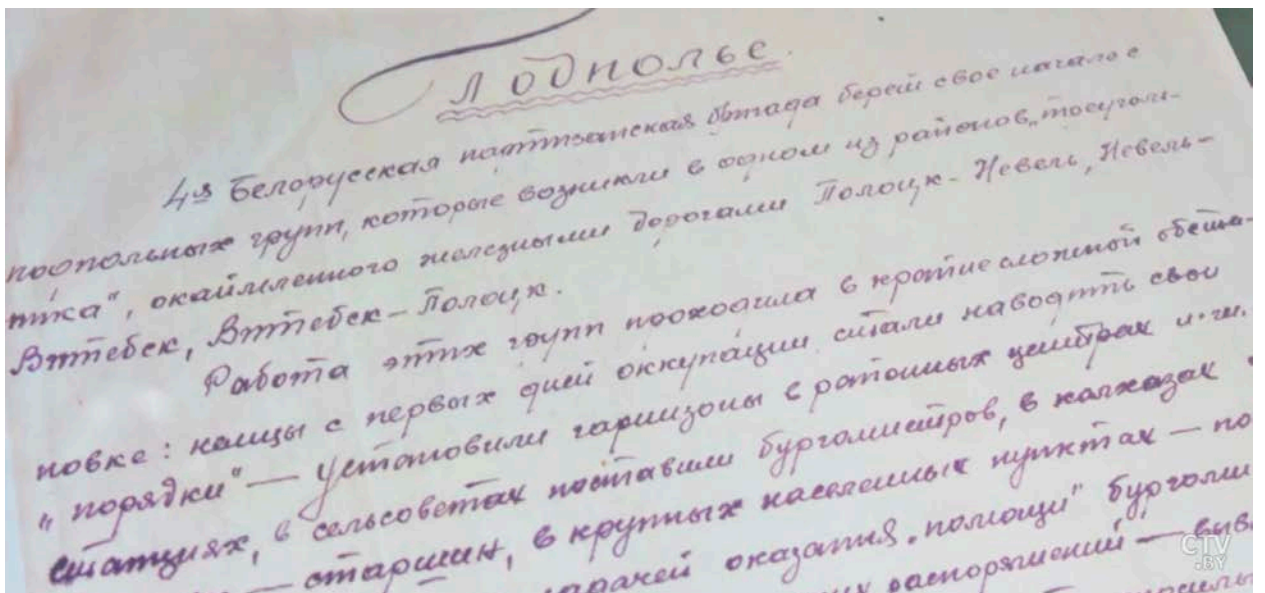 Подполье.
4я Белорусская партизанская бригада берет свое начало с
подпольных групп, которые возникли в одном из районов „треуголь-
ника", окаймленного железными дорогами Полоцк - Невель, Невель -
Витебск, Витебск - Полоцк.
Работа этих групп проходила в крайне сложной обста-
новке: немцы с первых дней оккупации стали наводить свои
„порядки" — установили гарнизоны в районных центрах и ж.
станциях, в сельсоветах поставили бургомистров, в колхозах
— старшин, в крупных населенных пунктах — по
задачей оказания „помощи" бургоми
распоряжений — выв
CTV
.BY